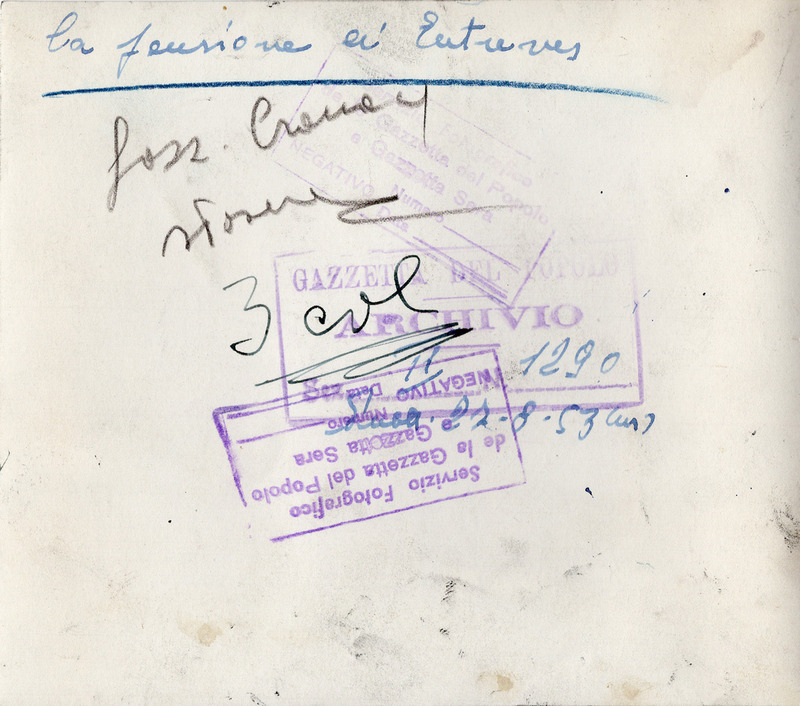 la pensione di Entreves
3 col
GAZZETTA DEL POPOLO
ARCHIVIO
II 1290
22-8-53
Servizio Fotografico
de la Gazzetta del Popolo
e Gazzetta Sera
NEGATIVO Numero
Data
Servizio Fotografico
de la Gazzetta del Popolo
e Gazzetta Sera
NEGATIVO Numero
Data